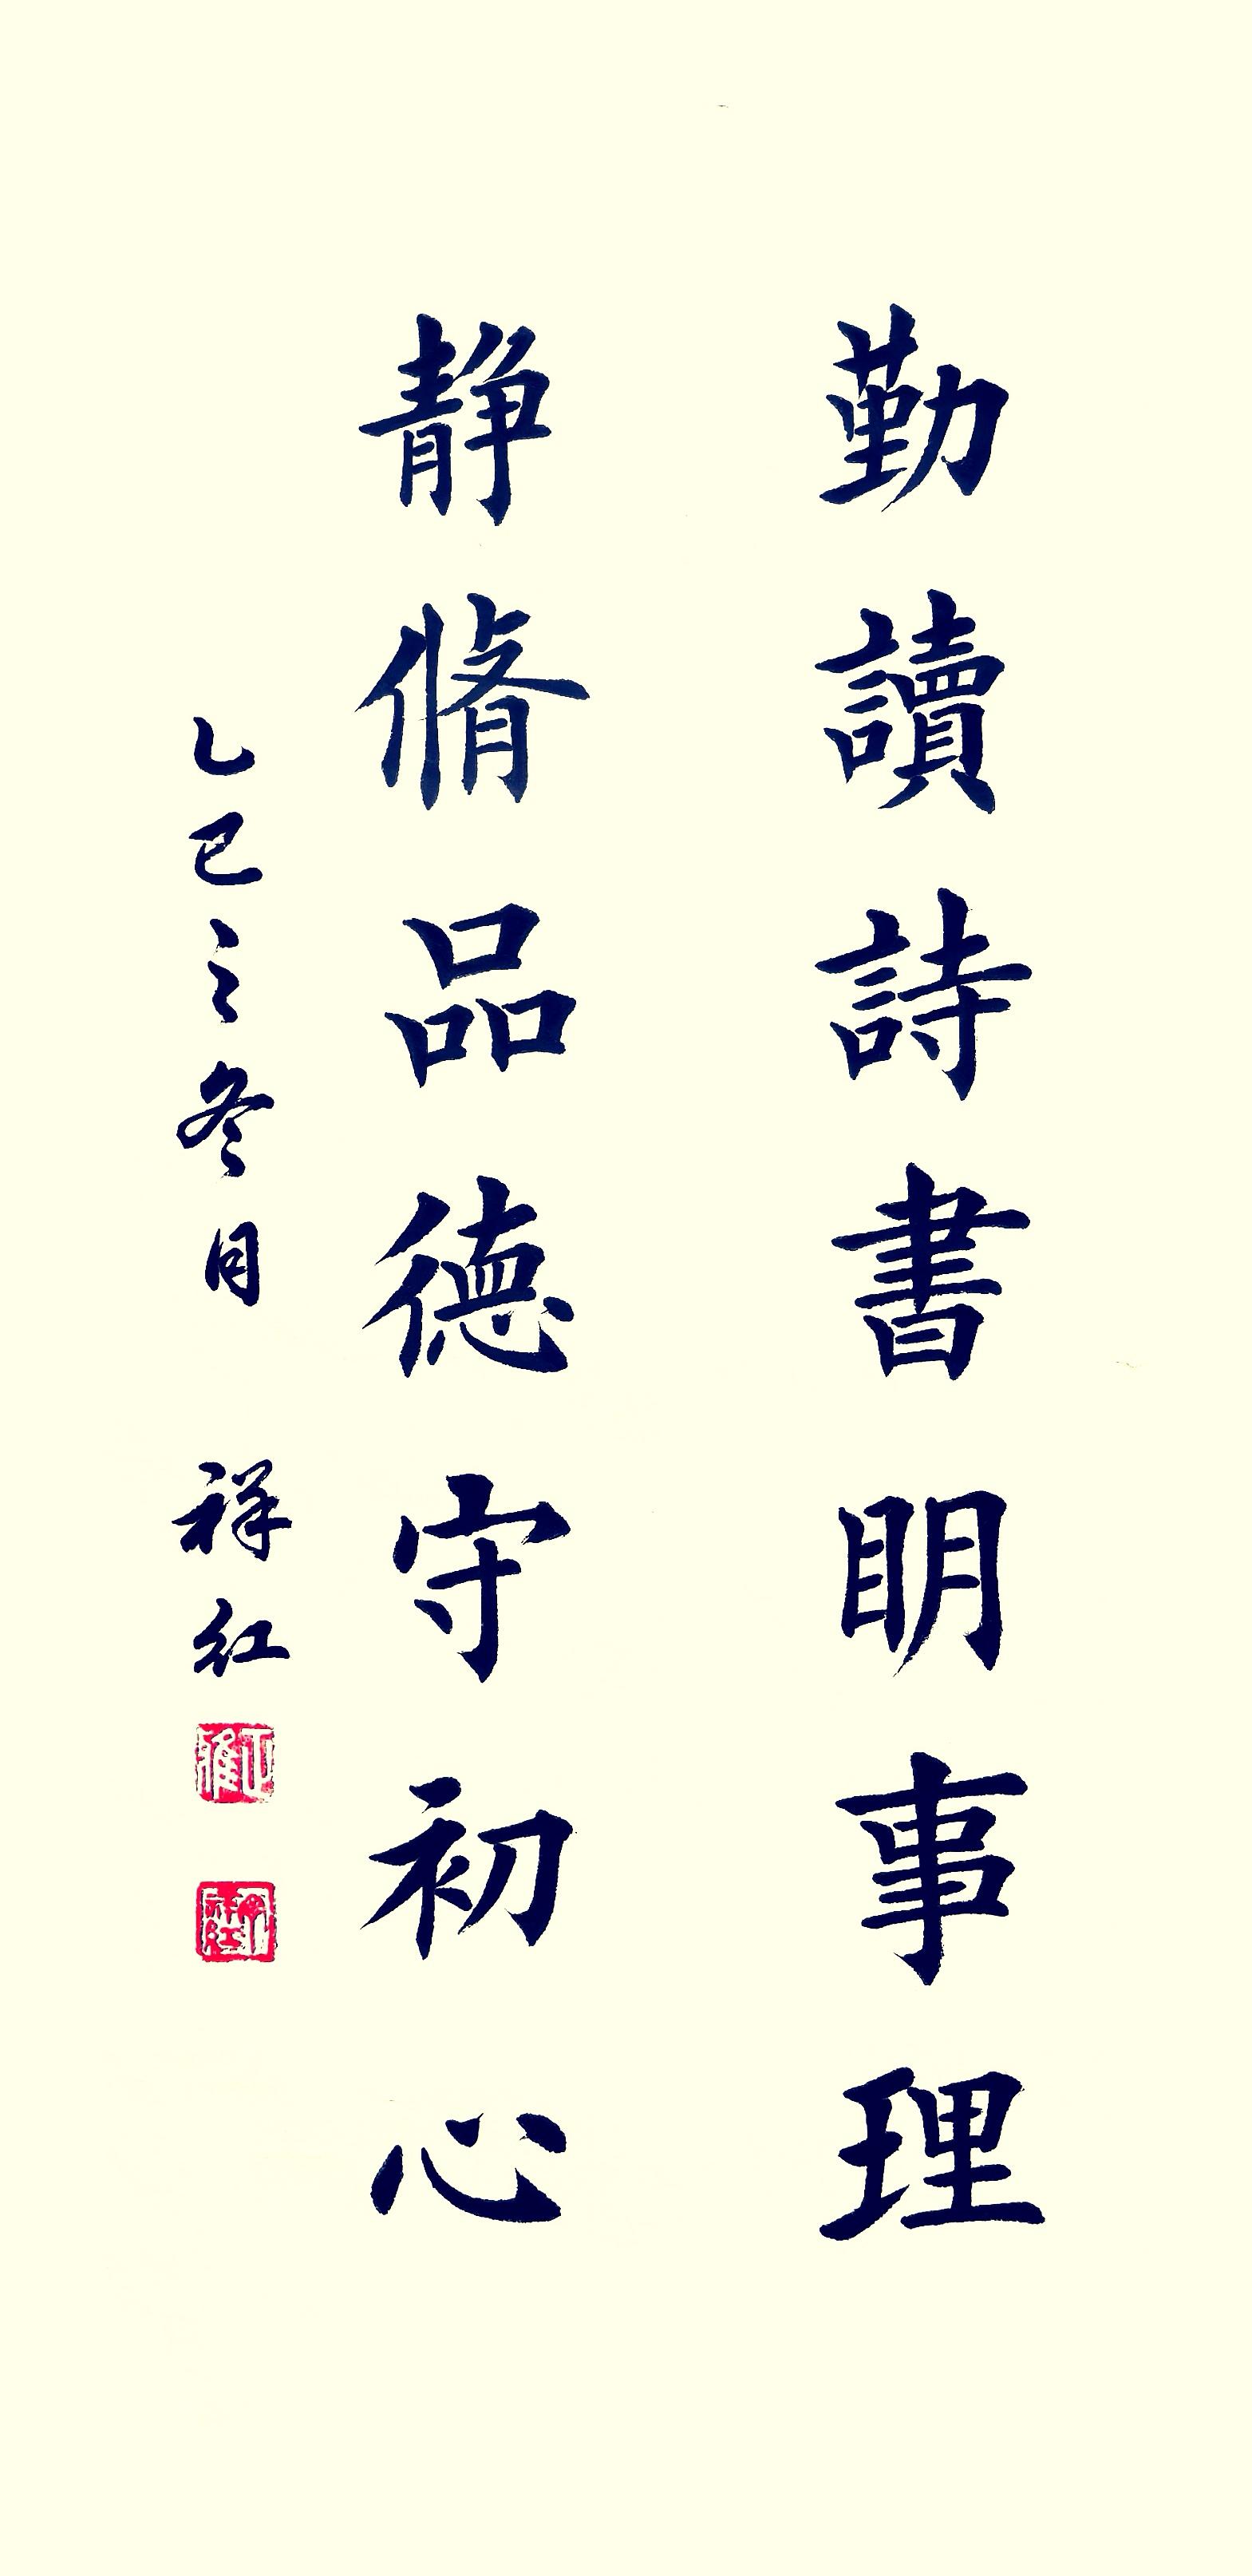 勤讀詩書眀事理
静脩品德守初心
乙巳之冬月 祥红